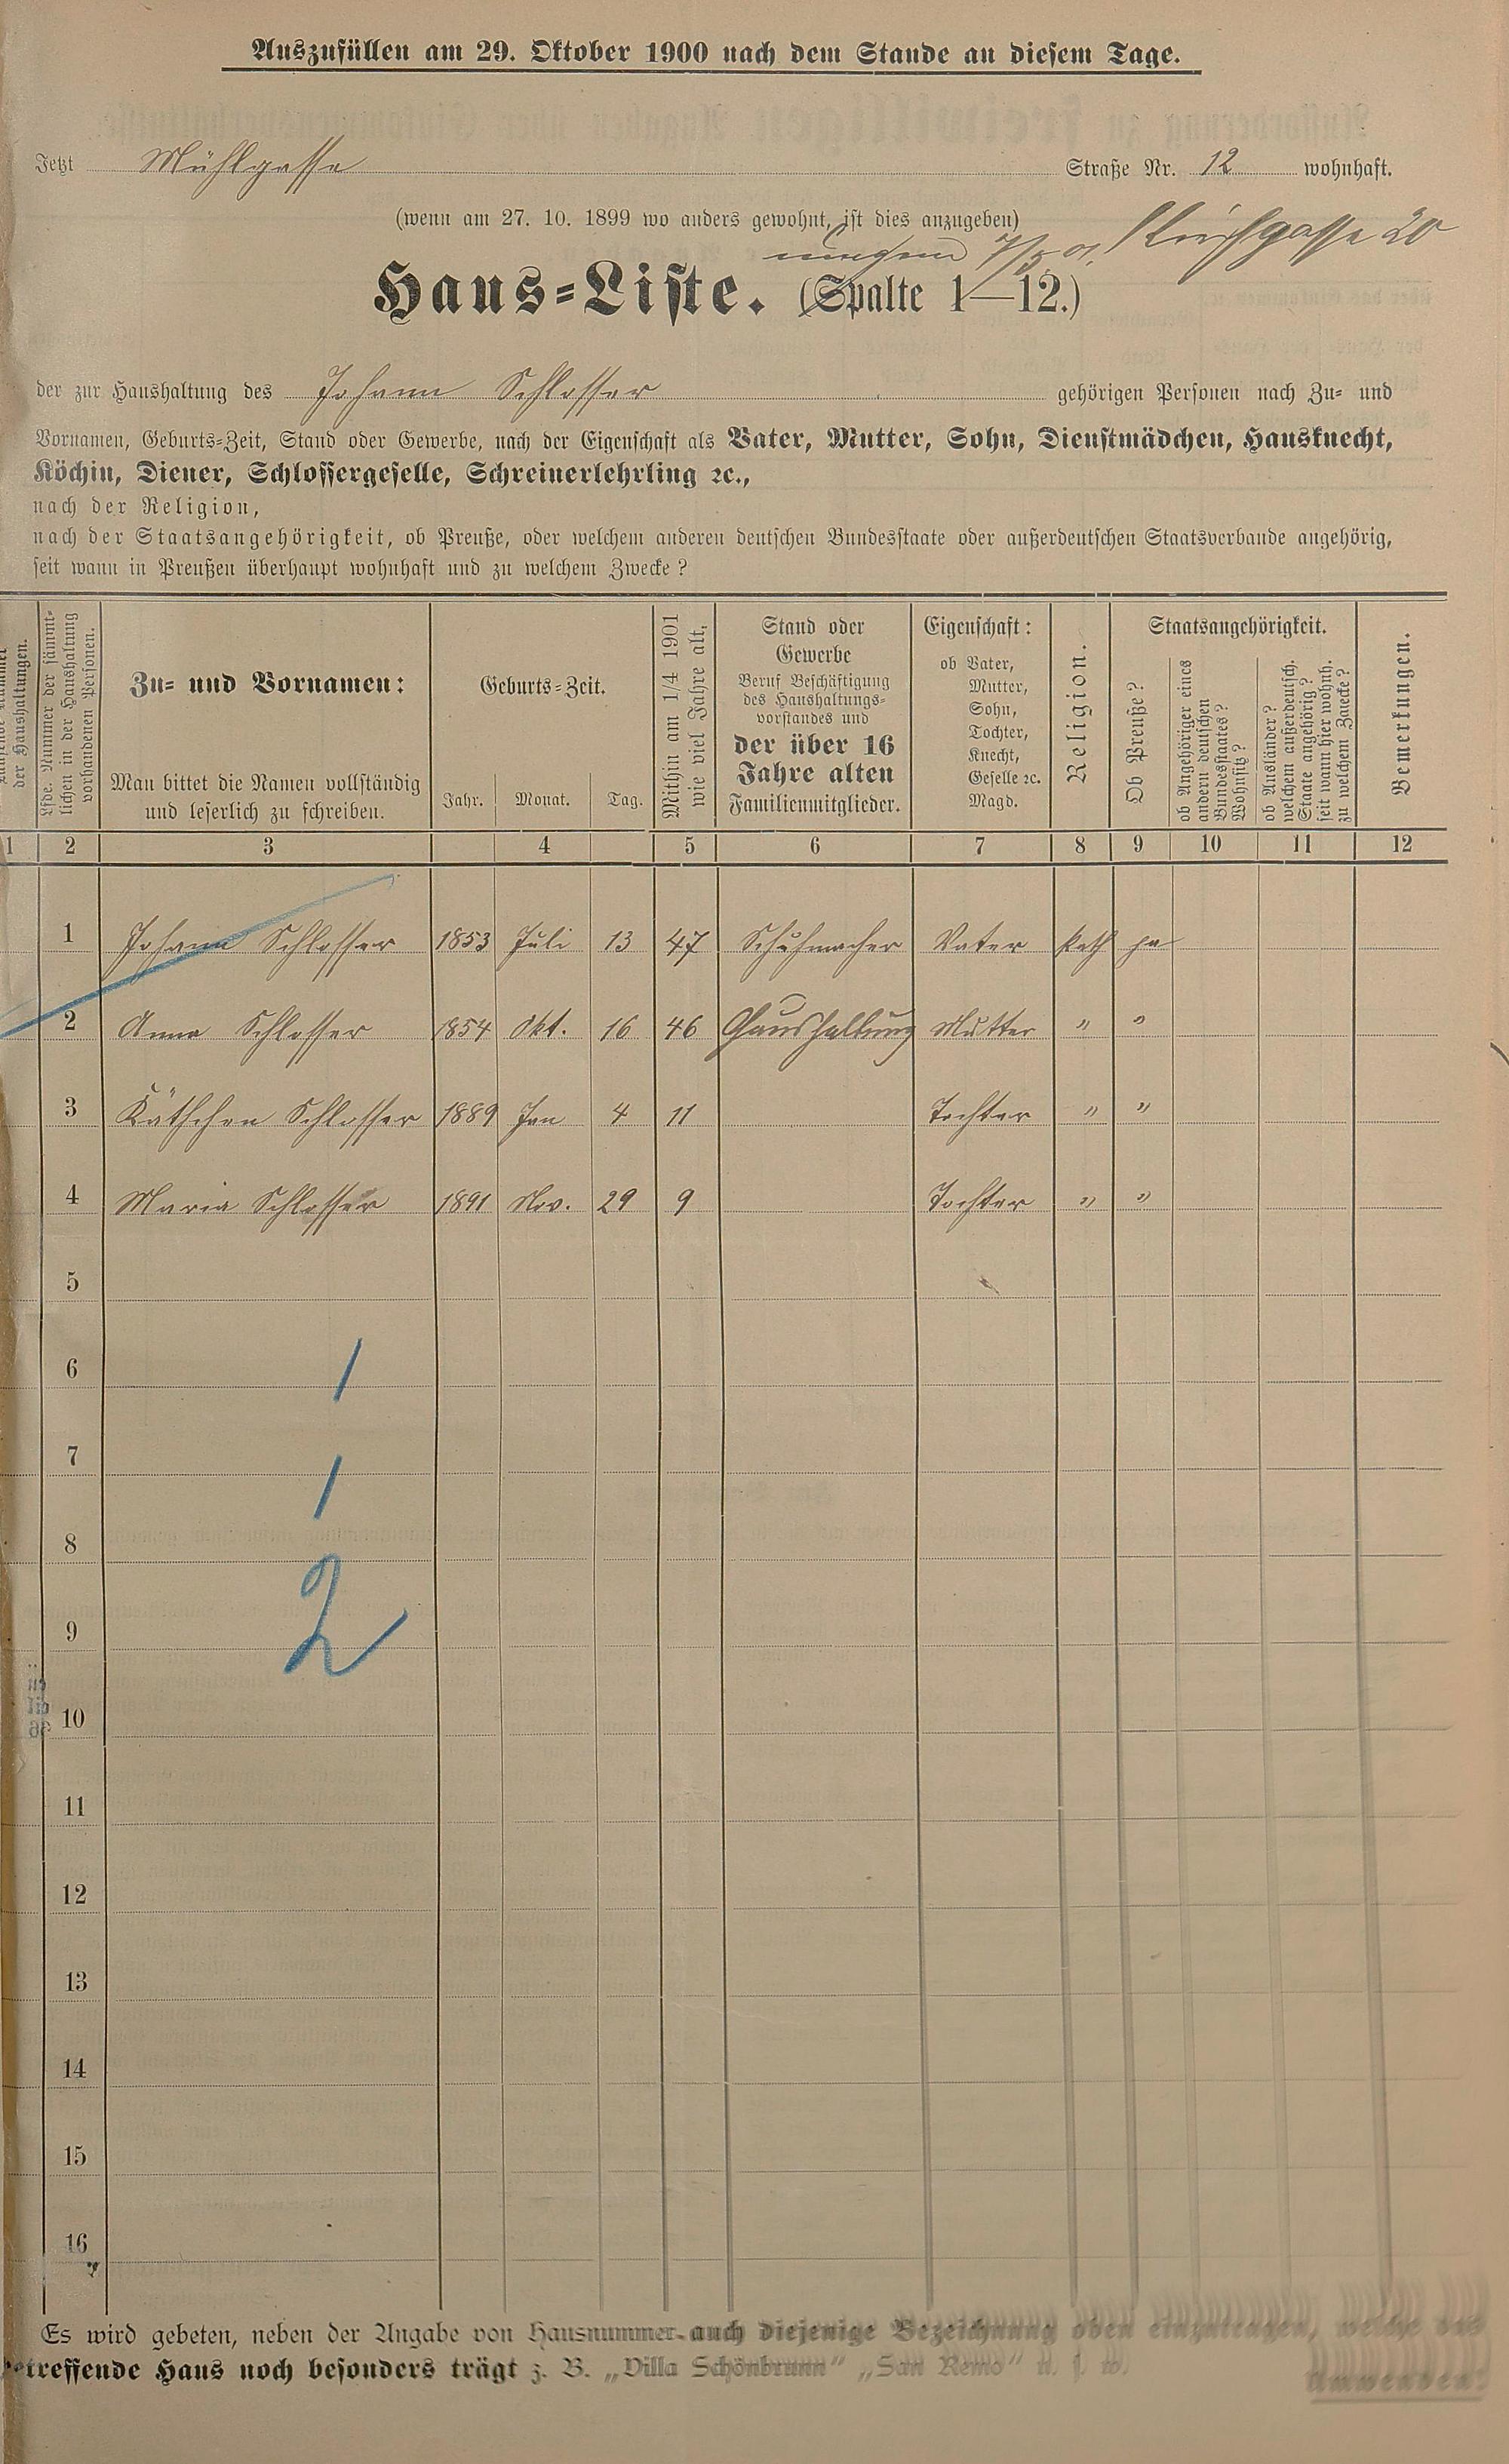 Auszufüllen am 29. Oktober 1900 nach dem Stande an diesem Tage.
Jetzt Mühlgasse Straße Nr. 12 wohnhaft.
(wenn am 27. 10. 1899 wo anders gewohnt, ist dies anzugeben)
20
Haus-Liste. (Spalte 1—12.)
der zur Haushaltung des Johann Schlosser gehörigen Personen nach Zu- und
Vornamen, Geburts-Zeit, Stand oder Gewerbe, nach der Eigenschaft als Vater, Mutter, Sohn, Dienstmädchen, Hausknecht,
Köchin, Diener, Schlossergeselle, Schreinerlehrling ꝛc.,
nach der Religion,
nach der Staatsangehörigkeit, ob Preuße, oder welchem anderen deutschen Bundesstaate oder außerdeutschen Staatsverbande angehörig,
seit wann in Preußen überhaupt wohnhaft und zu welchem Zwecke?
der Haushaltungen.
Lfde. Nummer der sämmt-
lichen in der Haushaltung
vorhandenen Personen.
Zu- und Vornamen:
Man bittet die Namen vollständig
und leserlich zu schreiben.
Geburts-Zeit.
Jahr. Monat. Tag.
Mithin am 1/4 1901
wie viel Jahre alt,
Stand oder
Gewerbe
Beruf Beschäftigung
des Haushaltungs-
vorstandes und
der über 16
Jahre alten
Familienmitglieder.
Eigenschaft:
ob Vater,
Mutter,
Sohn,
Tochter,
Knecht,
Geselle ꝛc.
Magd.
Religion.
Staatsangehörigkeit.
Ob Preuße?
ob Angehöriger eines
andern deutschen
Bundesstaates?
Wohnsitz?
ob Ausländer?
welchem außerdeutsch.
Staate angehörig?
seit wann hier wohnh.
zu welchem Zwecke?
Bemerkungen.
1 2 3 4 5 6 7 8 9 10 11 12
1 Johann Schlosser 1853 Juli 13 47 Schuhmacher Vater kath ja
2 Anna Schlosser 1854 Okt. 16 46 Haushaltung Mutter " "
3 Käthchen Schlosser 1889 Jan 4 11 Tochter " "
4 Maria Schlosser 1891 Nov. 29 9 Tochter " "
5
6 1
7 1
8
9 2
10
11
12
13
14
15
16
Es wird gebeten, neben der Angabe von Hausnummer auch diejenige Bezeichnung oben einzutragen, welche das
betreffende Haus noch besonders trägt z. B. „Villa Schönbrunn“ „San Remo“ u. s. w.
Umwenden!